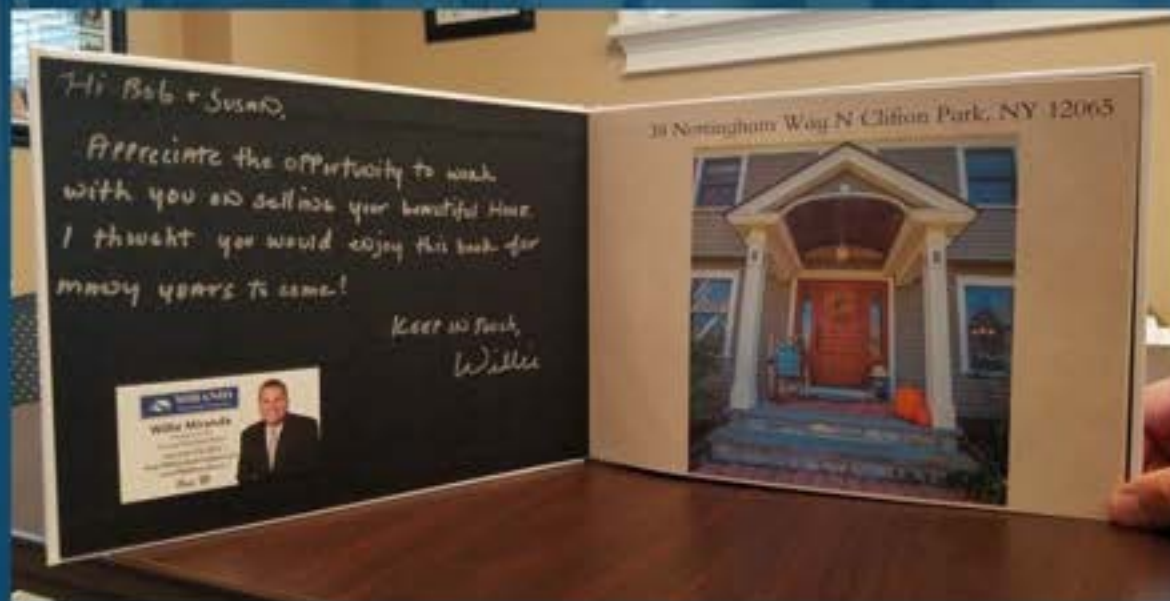 Hi Bob + Susan,
Appreciate the opportunity to work
with you on selling your beautiful Home.
I thought you would enjoy this book for
many years to come!
Keep in touch,
Willie
MIRANDA
Willie Miranda
Nottingham Way N Clifton Park, NY 12065